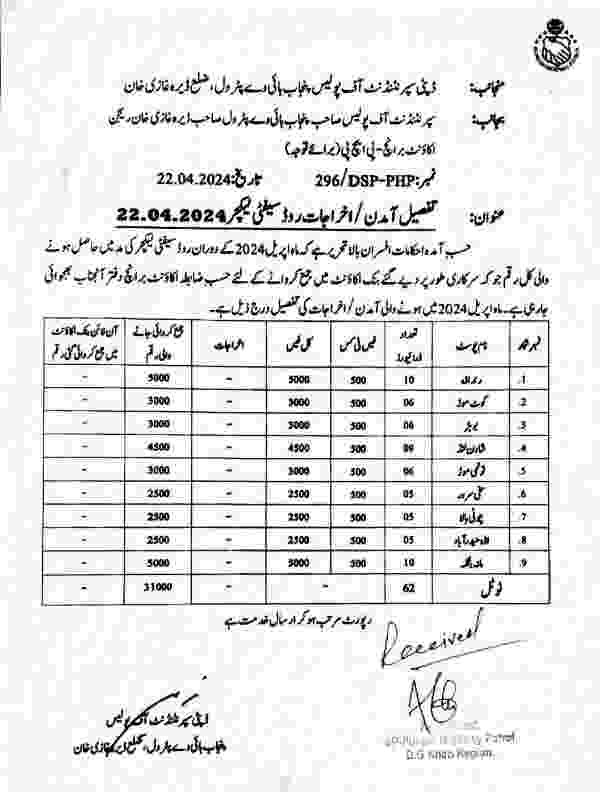 منجانب: ڈپٹی سپرنٹنڈنٹ آف پولیس پنجاب ہائی وے پٹرول، ضلع ڈیرہ غازی خان
بجانب: سپرنٹنڈنٹ آف پولیس صاحب پنجاب ہائی وے پٹرول صاحب ڈیرہ غازی خان ریجن
اکاؤنٹ برانچ-پی ایچ پی (برائے توجہ)
نمبر: 296/DSP-PHP تاریخ: 22.04.2024
عنوان: تفصیل آمدن/اخراجات روڈ سیفٹی لیکچر 22.04.2024
حسب آمدہ احکامات افسران بالا تحریر ہے کہ ماہ اپریل 2024 کے دوران روڈ سیفٹی لیکچر کی مد میں حاصل ہونے
والی کل رقم جو کہ سرکاری طور پر دیے گئے بنک اکاؤنٹ میں جمع کروانے کے لئے حسب ضابطہ اکاؤنٹ برانچ دفتر آنجناب بھجوائی
جارہی ہے۔ ماہ اپریل 2024 میں ہونے والی آمدن/اخراجات کی تفصیل درج ذیل ہے۔
نمبر شمار نام پوسٹ تعداد ڈرائیورز فیس فی کس کل فیس اخراجات جمع کروائی جانے والی رقم آن لائن بنک اکاؤنٹ میں جمع کروائی گئی رقم
1. 10 500 5000 - 5000 -
2. کوٹ موڑ 06 500 3000 - 3000 -
3. 06 500 3000 - 3000 -
4. شادن لنڈ 09 500 4500 - 4500 -
5. موڑ 06 500 3000 - 3000 -
6. سخی سرور 05 500 2500 - 2500 -
7. چوٹی بالا 05 500 2500 - 2500 -
8. حیدرآباد 05 500 2500 - 2500 -
9. 10 500 5000 - 5000 -
ٹوٹل 62 - - 31000 -
رپورٹ مرتب ہو کر ارسال خدمت ہے
Received
ڈپٹی سپرنٹنڈنٹ آف پولیس
پنجاب ہائی وے پٹرول، ضلع ڈیرہ غازی خان
Patrol
D.G Khan Region.